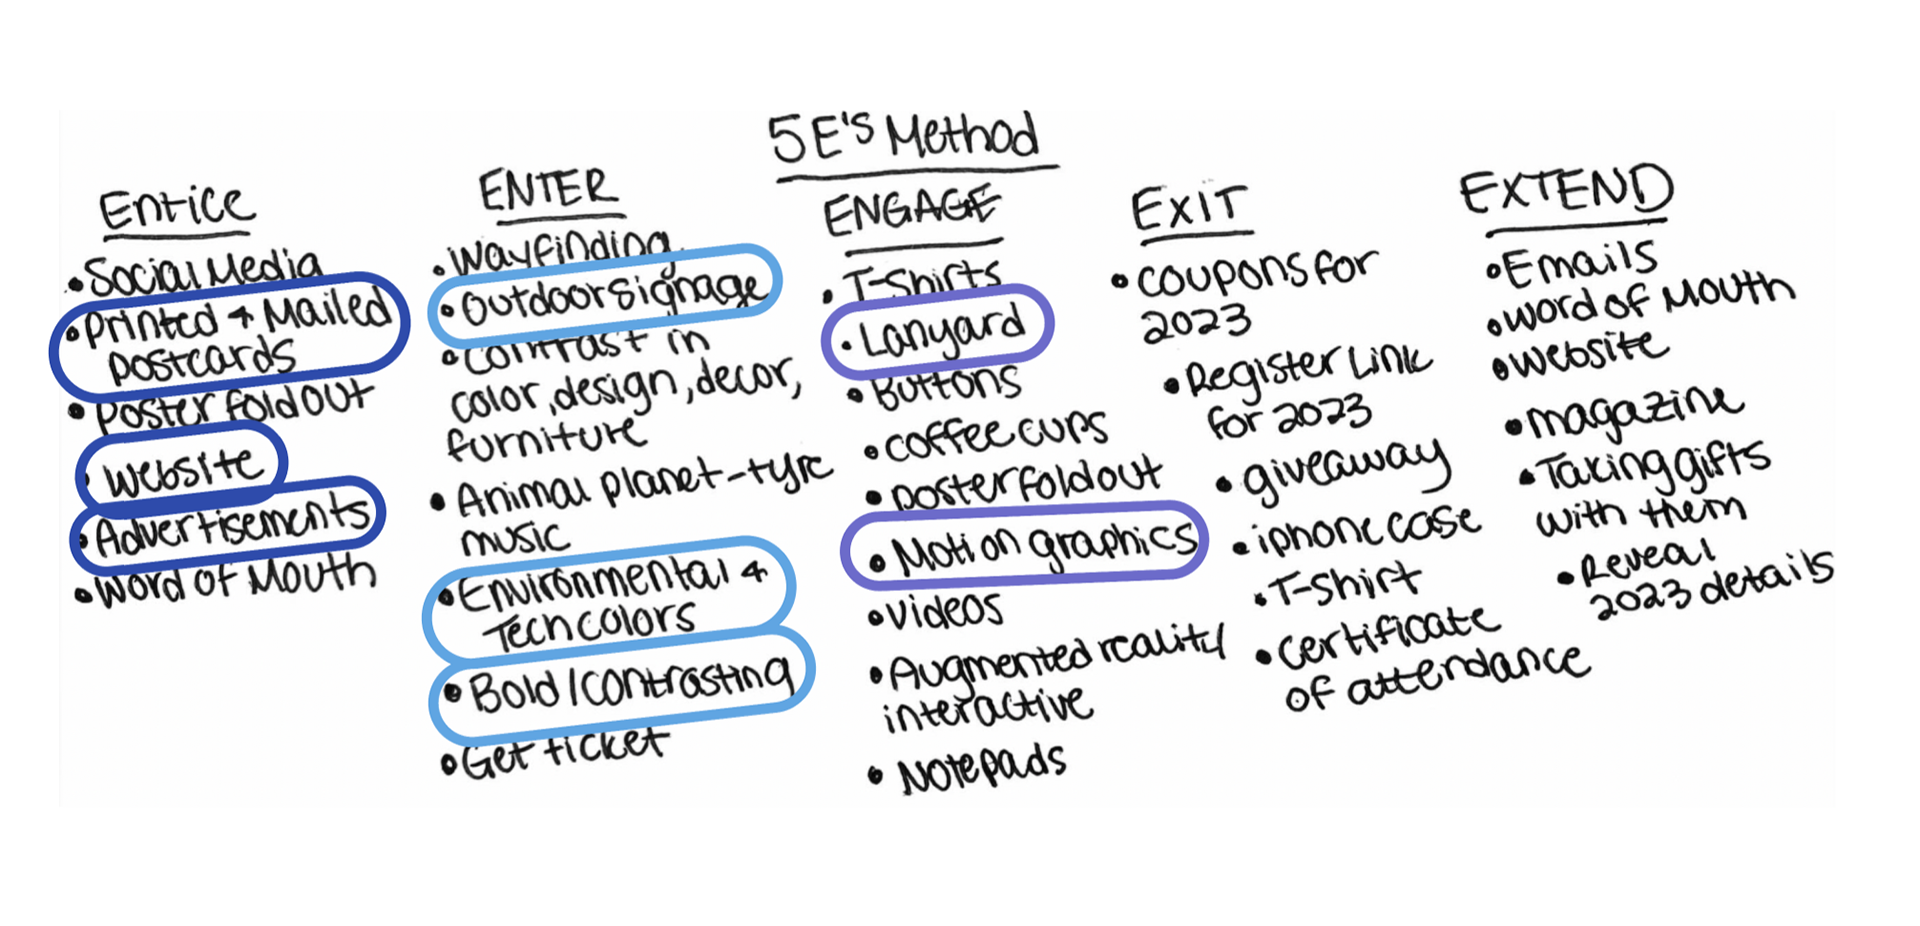 5E's Method
Entice
• Social Media
• Printed + Mailed
postcards
• poster foldout
• website
• Advertisements
• Word of Mouth
ENTER
• wayfinding
• outdoor signage
• contrast in
color, design, decor,
furniture
• Animal planet-type
music
• Environmental +
Tech colors
• Bold/contrasting
• Get ticket
ENGAGE
• T-Shirts
• Lanyard
• Buttons
• coffee cups
• poster foldout
• Motion graphics
• videos
• Augmented reality/
interactive
• Notepads
EXIT
• coupons for
2023
• Register Link
for 2023
• giveaway
• iphone case
• T-Shirt
• certificate
of attendance
EXTEND
• Emails
• word of Mouth
• website
• magazine
• Taking gifts
with them
• Reveal
2023 details